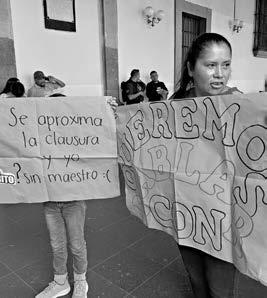 Se aproxima
la clausura
y yo
? sin maestro :(
QUEREMOS
HABLAR
CON